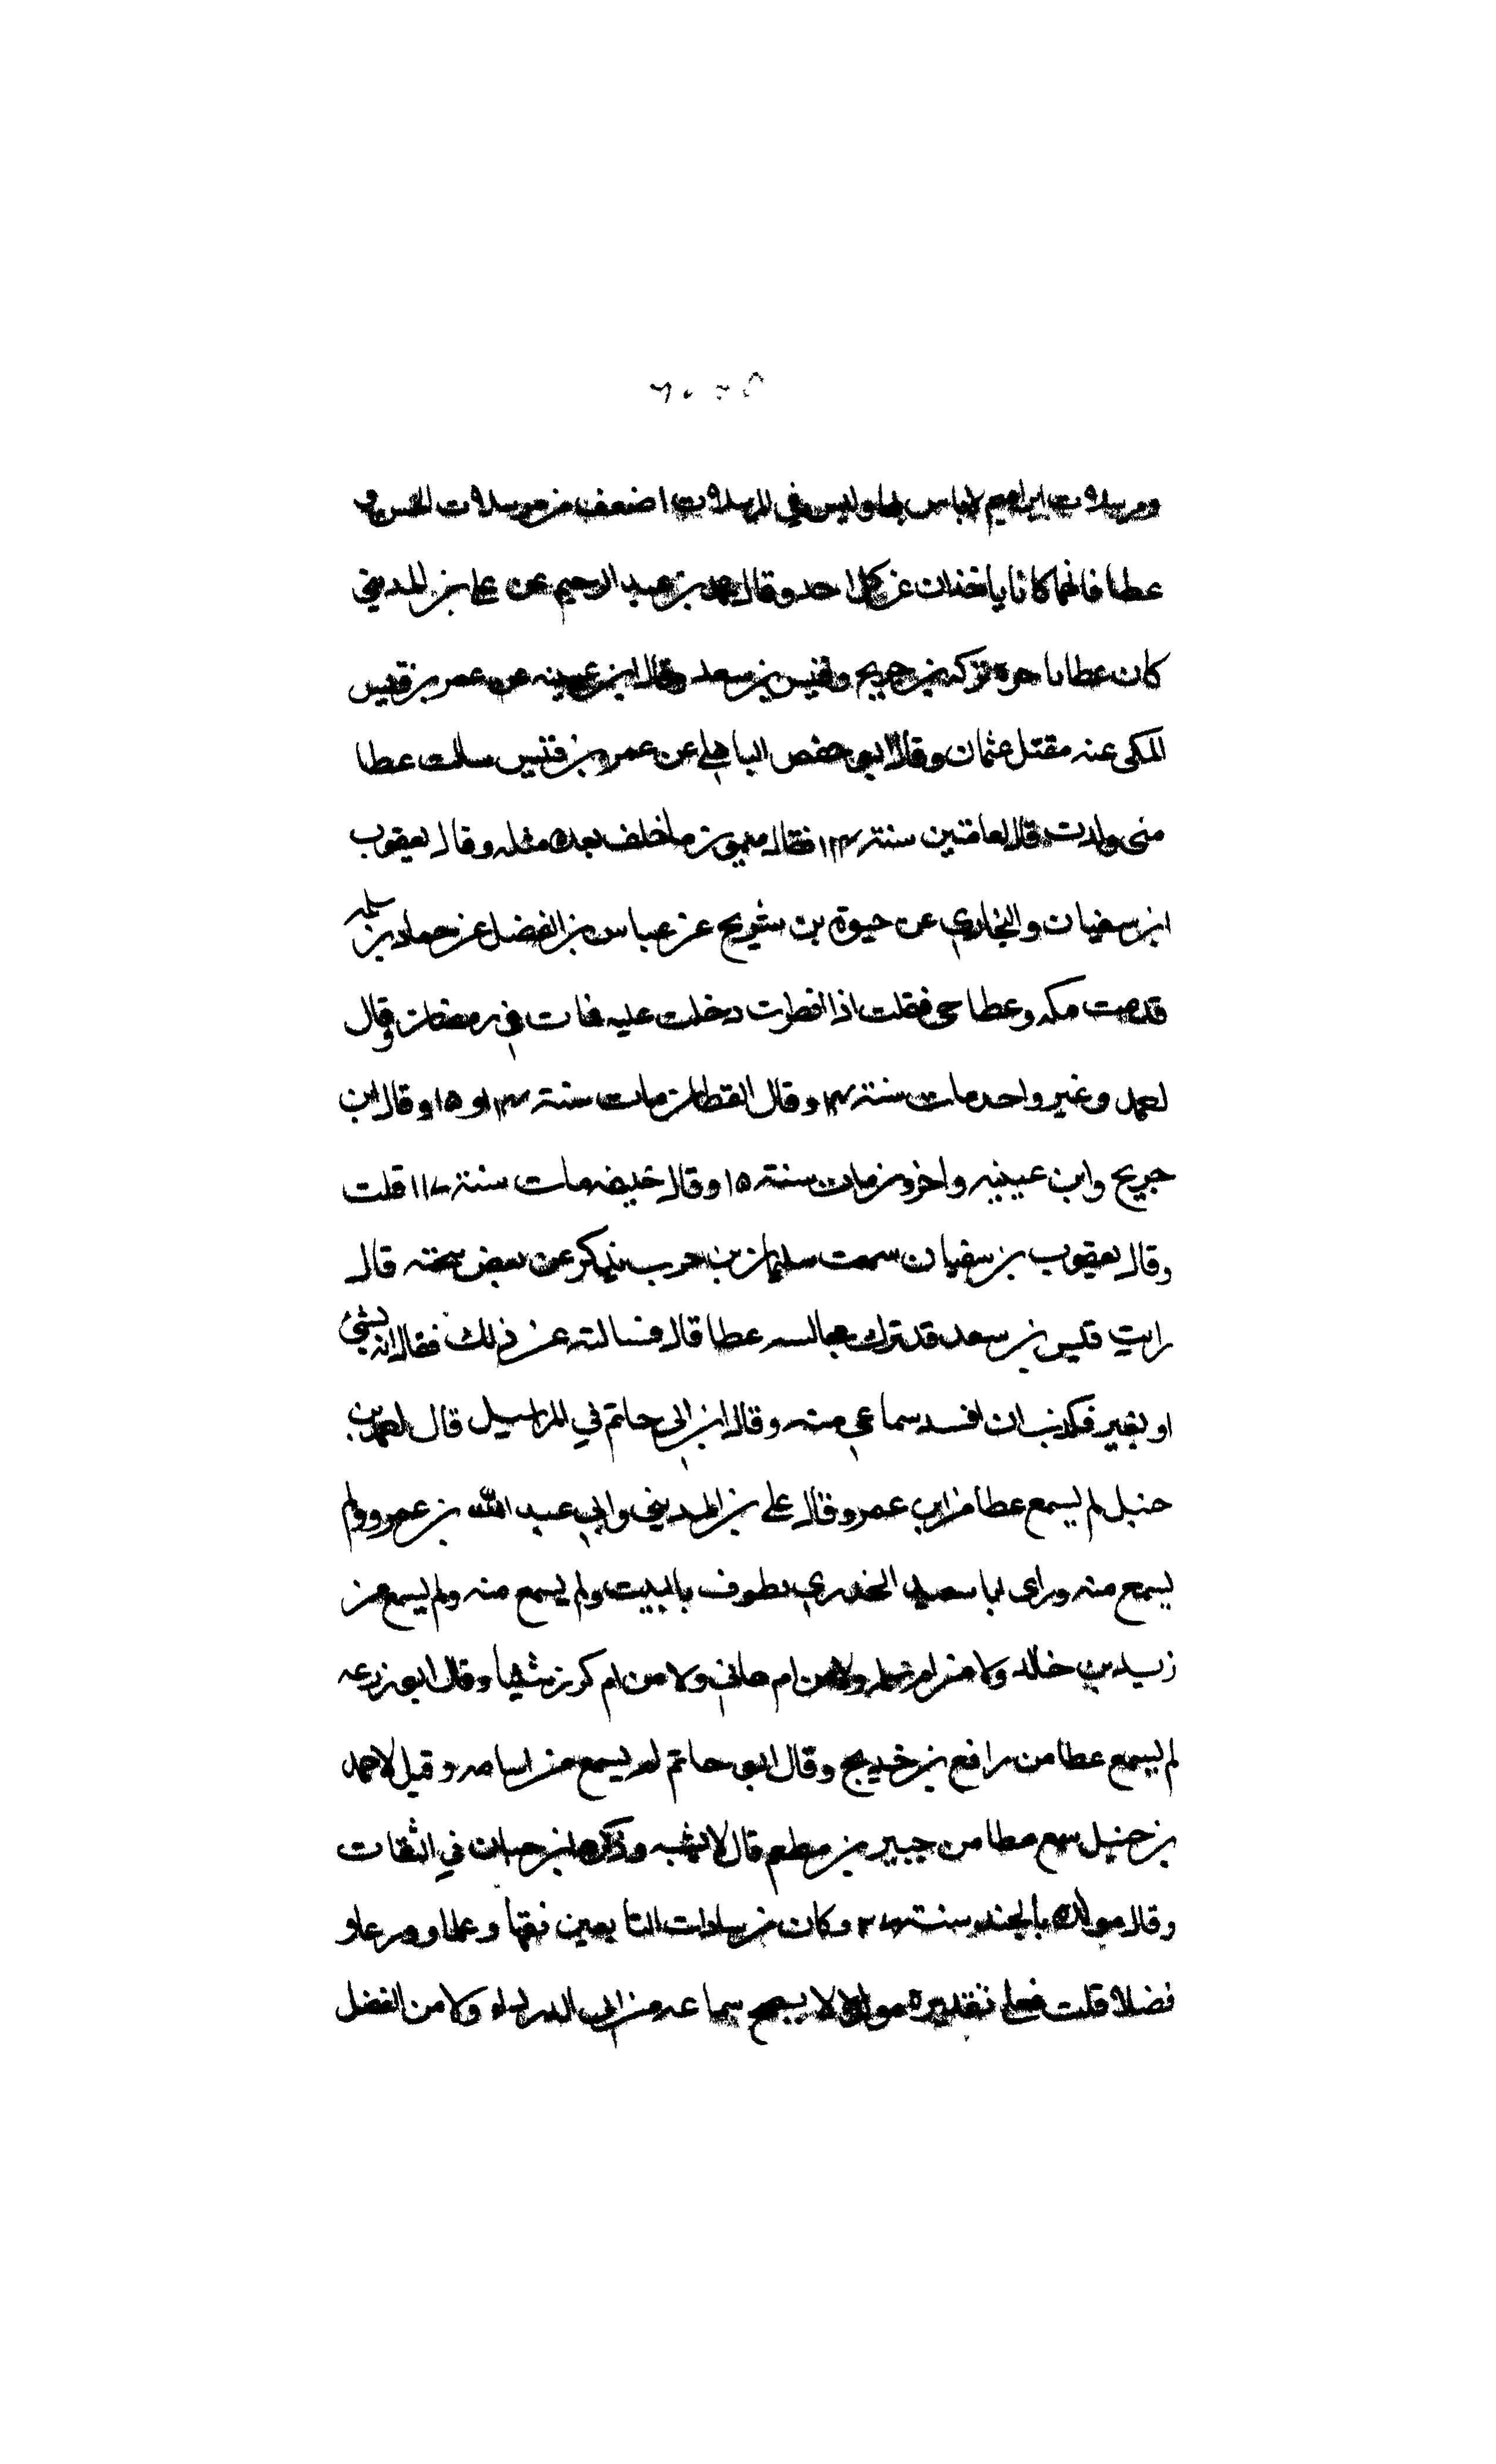 ومرسلات ابراهيم لاباس بها وليس في المرسلات اضعف من مرسلات الحسن و
عطا فانهما كانا ياخذان عن كل احد وقال محمد بن عبد الرحيم عن علي بن المديني
كان عطا باخره تركه بن جريج وقيس بن سعد وقال ابن عيينه عن عمر بن قيس
المكي عنه مقتل عثمان وقال ابو حفص الباهلي عن عمر بن قيس سالت عطا
متى ولدت قال لعامين سنة فقال ميمون ما خلف بعده مثله وقال يعقوب
ابن سفيان والبخاري عن حيوة بن شريح عن عباس بن الفضل عن حماد بن سلمه
قدمت مكه وعطا حي فقلت اذا افطرت دخلت عليه فمات في رمضان وقال
احمد وغير واحد مات سنة ١٤ وقال القطان مات سنة ١٤ او ١٥ وقال ابن
جريج وابن عيينه واخرون مات سنة ١٥ وقال خليفه مات سنة ١١٧ قلت
وقال يعقوب بن سفيان سمعت سليمان بن حرب يذكر عن بعض قال
رايت قيس بن سعد قد ترك مجالسه عطا قال فسالته عن ذلك فقال انه نسي
او تغير فكدت ان افسد سماعي منه وقال ابن ابي حاتم في المراسيل قال احمد بن
حنبل لم يسمع عطا من ابن عمر وقال علي بن المديني وابي عبد الله بن عمر ولم
يسمع منه وراى ابا سعيد الخدري يطوف بالبيت ولم يسمع منه ولم يسمع من
زيد بن خالد ولا من ام سلمه ولا من ام هاني ولا من ام كرز شيا وقال ابو زرعه
لم يسمع عطا من رافع بن خديج وقال ابو حاتم لم يسمع من اسامه وقيل لاحمد
بن حنبل سمع عطا من جبير بن مطعم قال لا يشبه وذكره ابن حبان في الثقات
وقال مولده بالجند سنة ٢٧ وكان من سادات التابعين فقها وعلما وورعا و
فضلا قلت فعلى تقدير مولده لا يصح سماعه من ابي الدرداء ولا من الفضل